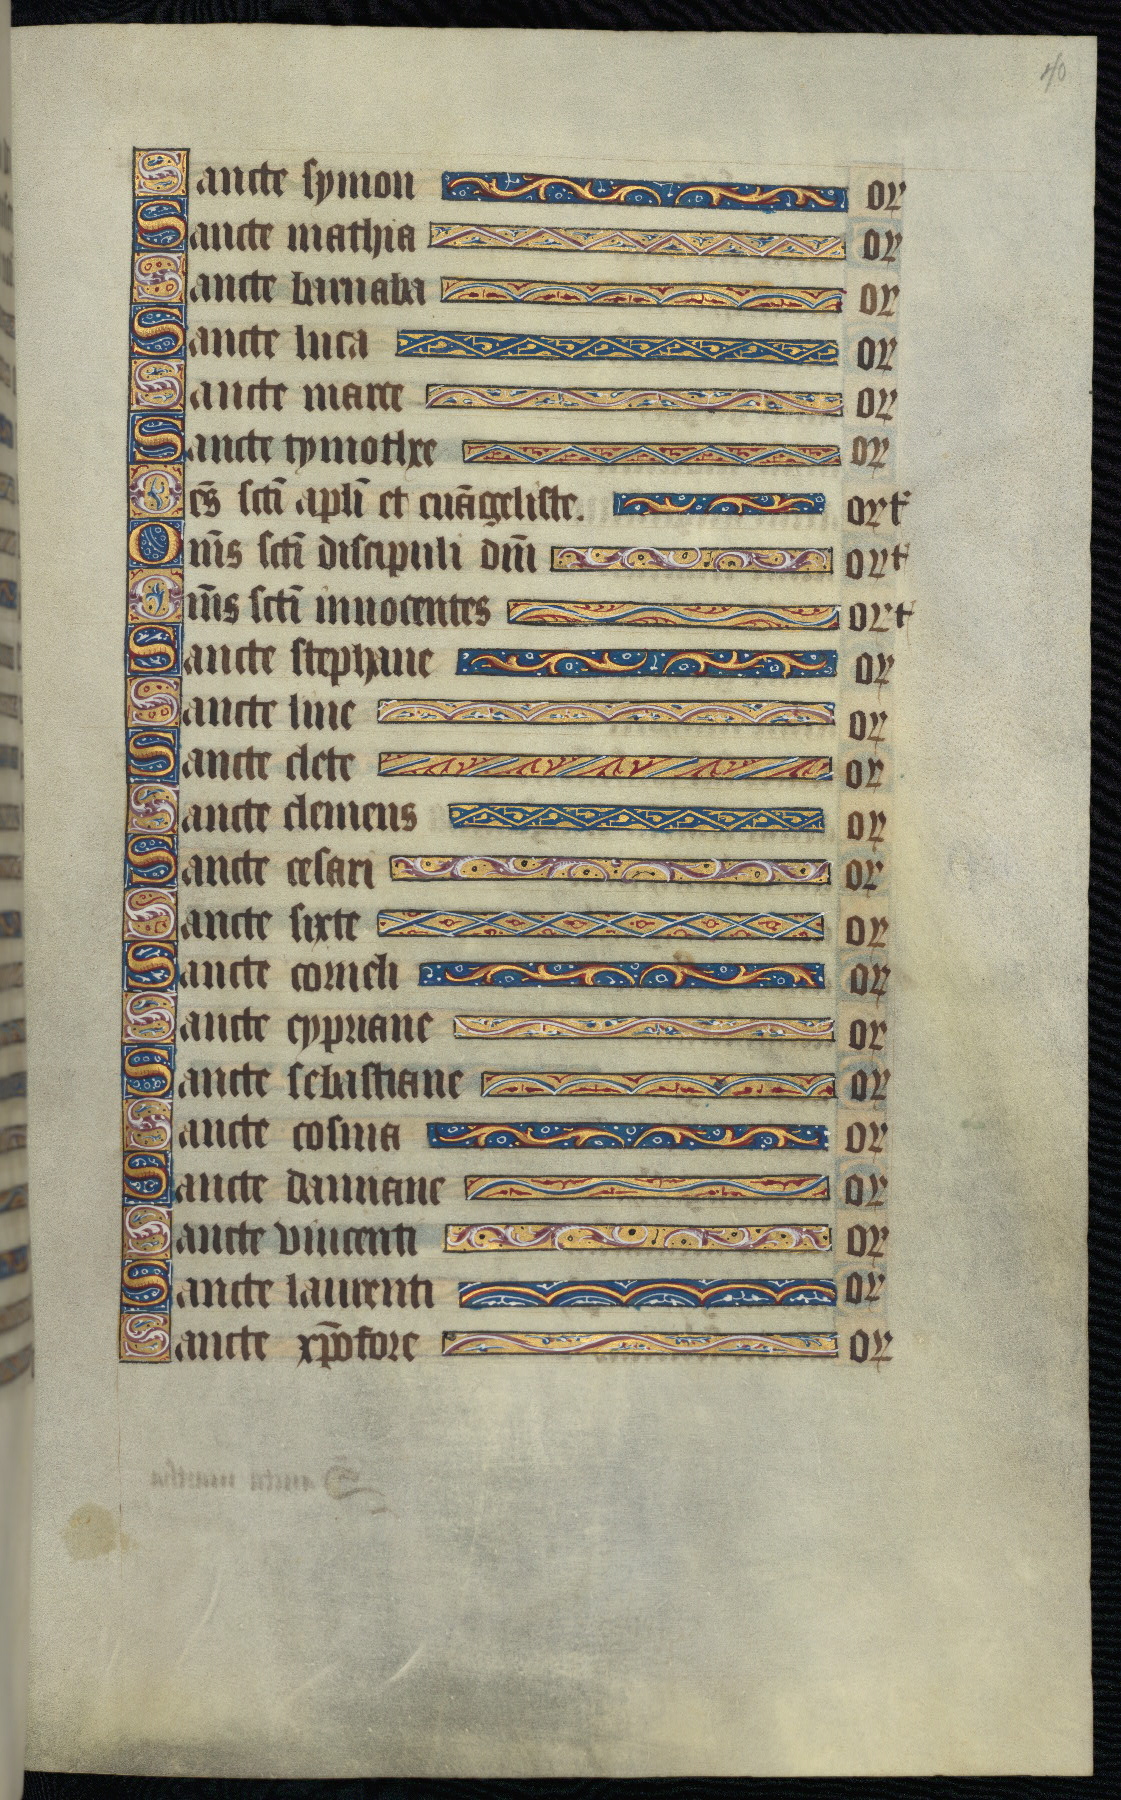 40
Sancte symon or
Sancte mathia or
Sancte barnaba or
Sancte luca or
Sancte marce or
Sancte tymothee or
Oēs sctī aplī et euāgeliste. ort̄
Om̄s sctī discipuli dnī ort̄
Om̄s sctī innocentes ort̄
Sancte stephane or
Sancte line or
Sancte clete or
Sancte clemens or
Sancte cesari or
Sancte sixte or
Sancte corneli or
Sancte cypriane or
Sancte sebastiane or
Sancte cosma or
Sancte damiane or
Sancte vincenti or
Sancte laurenti or
Sancte xp̄ofore or